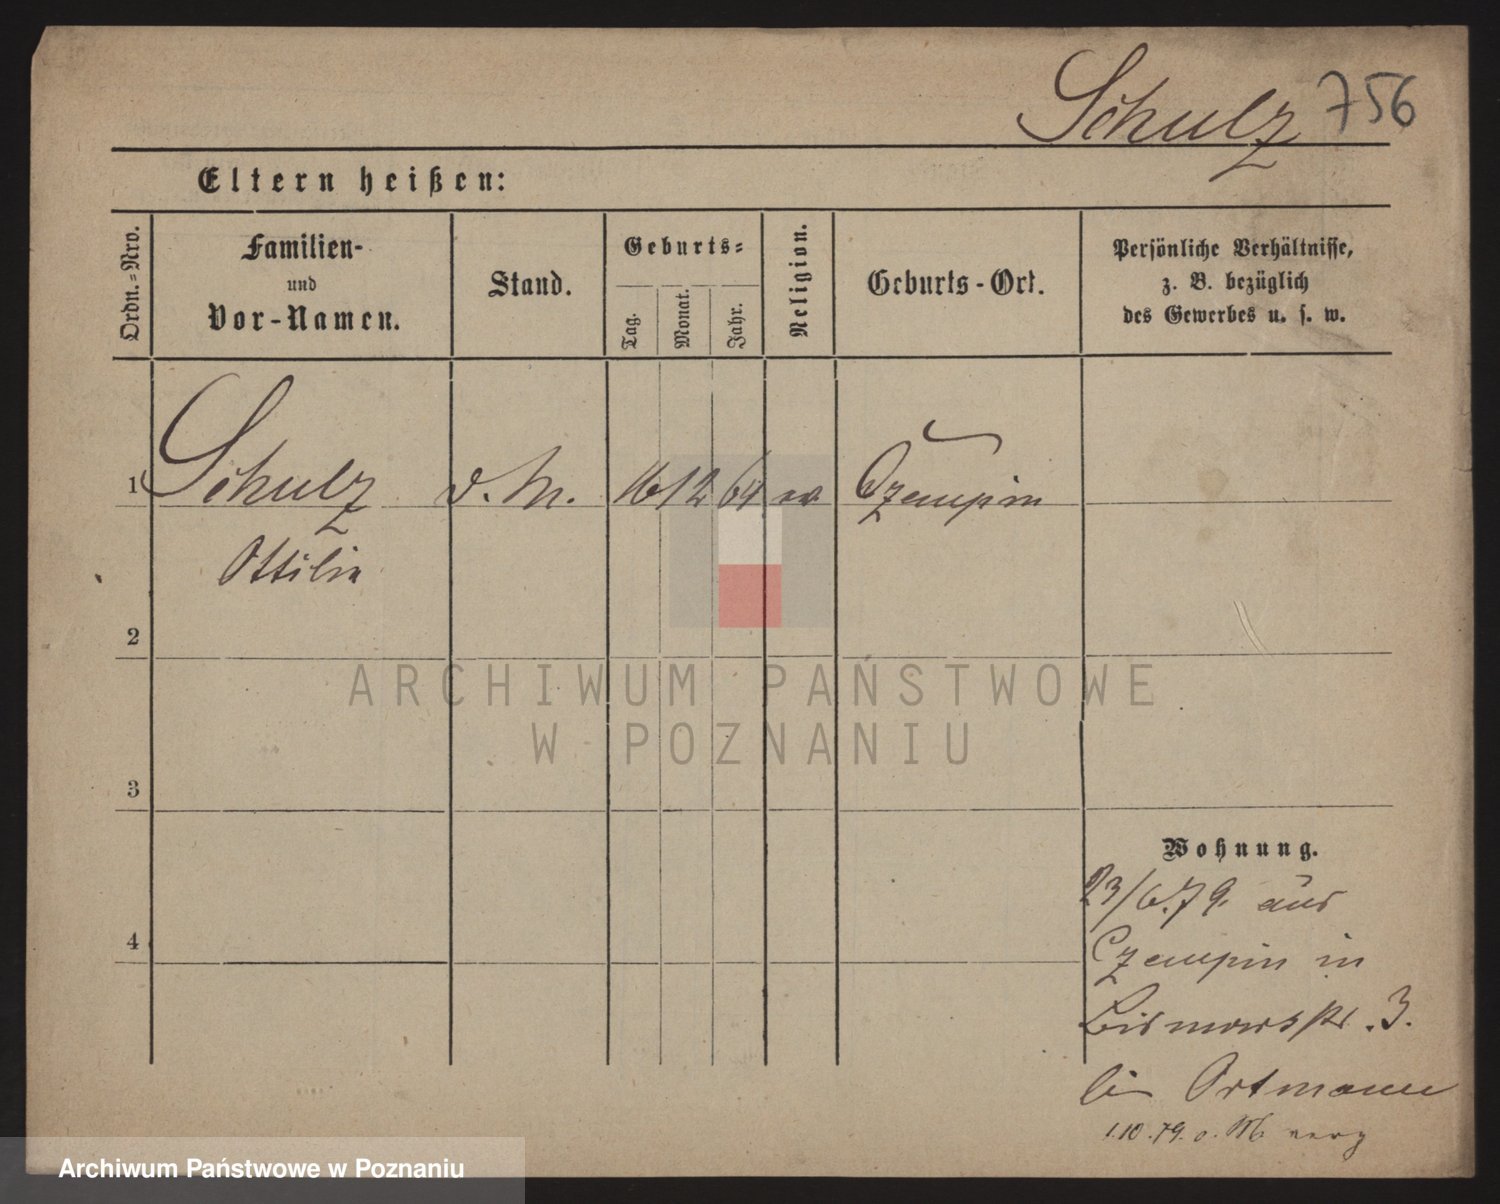 Schulz 756
Eltern heißen:
Ordn.=Nro.
Familien-
und
Vor-Namen.
Stand.
Geburts=
Tag.
Monat.
Jahr.
Religion.
Geburts-Ort.
Persönliche Verhältnisse,
z. B. bezüglich
des Gewerbes u. s. w.
1 Schulz d. M. 16 12 64 ev Czempin
Ottilie
2
3
4
Wohnung.
23/6.79. aus
Czempin in
Bismarkstr. 3.
bei Ortmann
1.10.79. o. M. verz
ARCHIWUM PAŃSTWOWE
W POZNANIU
Archiwum Państwowe w Poznaniu